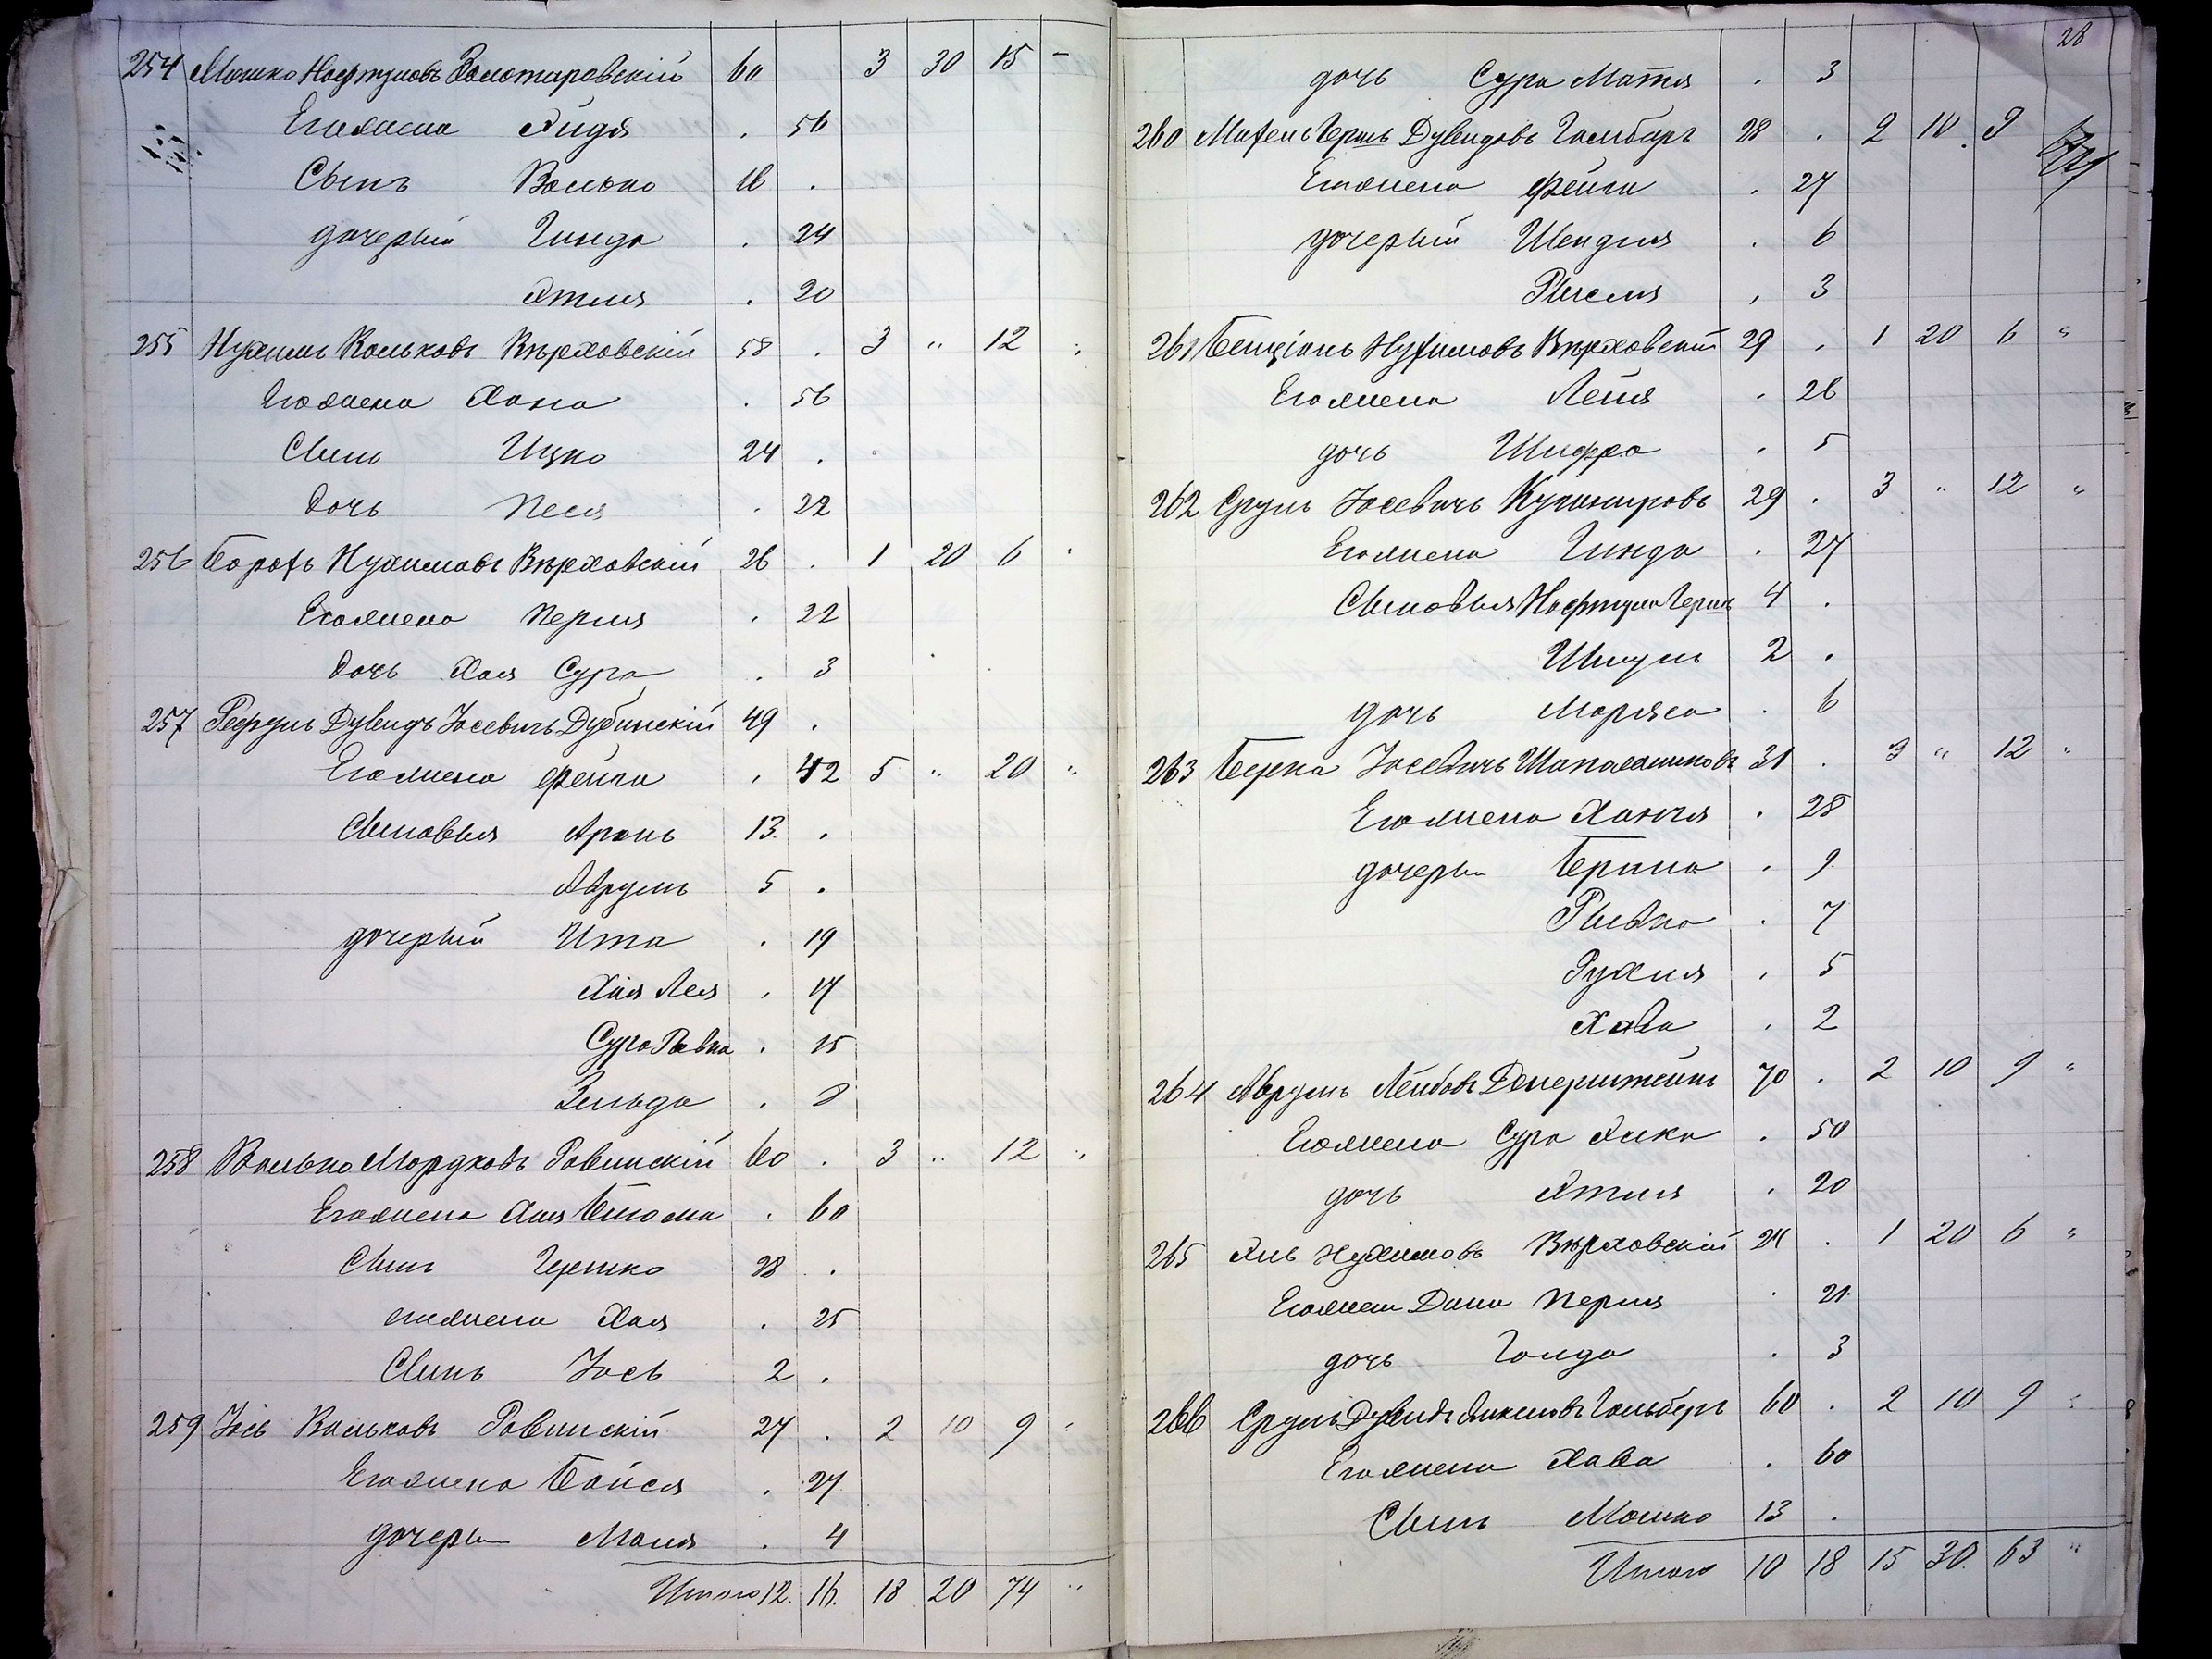 254 Мошко Нафтулов Золотаровскій 60 3 30 15 -
Его жена Хидя . 56
Сынъ Волько 16 .
дочерый Гинда . 24
Этля . 20
255 Нухимъ Вольковъ Вѣрховскій 58 . 3 " 12
Его жена Хана . 56
Сынъ Ицко 24 .
Дочь Песя . 22
256 Борохъ Нухимовъ Вѣрховскій 26 . 1 20 6
Его жена Перля . 22
Дочь Хая Сура . 3
257 Рефулъ Дувидъ Іосевичъ Дубинскій 49 .
Его жена Фейга . 42 5 " 20 "
Сыновья Аронъ 13 .
Аврумъ 5 .
дочерый Ита . 19
Хая Лея . 17
Сура Ривка . 15
Зельда . 8
258 Волько Мордковъ Ровинскій 60 . 3 " 12 "
Его жена Хая . 60
Сынъ Гершко 28 .
его жена Хая . 25
Сынъ Іось 2 .
259 Іось Вольковъ Ровинскій 27 . 2 10 9
Его жена Бейся . 27
дочеры Маня . 4
Итого 12. 16. 18 20 74 "
28
дочь Сура Матля . 3
260 Михель Гершъ Дувидовъ Гольбаръ 28 . 2 10 9
Его жена Фейга . 27
дочерый Шендля . 6
Рыся . 3
261 Бенціонъ Нухимовъ Вѣрховскій 29 . 1 20 6 "
Его жена Лейя . 26
дочь Шифра . 5
262 Сруль Іосевичъ Кушнировъ 29 . 3 " 12 "
Его жена Гинда . 27
Сыновья Нафтула Гершъ 4 .
Шмуль 2 .
дочь Марьяса . 6
263 Берка Іосевичъ Шаповаликовъ 31 . 3 " 12 "
Его жена Ханця . 28
дочеры Брана . 9
Рывка . 7
Рухля . 5
Хава . 2
264 Аврумъ Лейбовъ Денерштейнъ 70 . 2 10 9 "
Его жена Сура . 50
дочь Этля . 20
265 Эль Нухимовъ Вѣрховскій 24 . 1 20 6 "
Его жена Дина Перля . 21
дочь Голда . 3
266 Сруль Дувидъ Гольберъ 60 . 2 10 9
Его жена Хава . 60
Сынъ Мошко 13 .
Итого 10 18 15 30 63 "